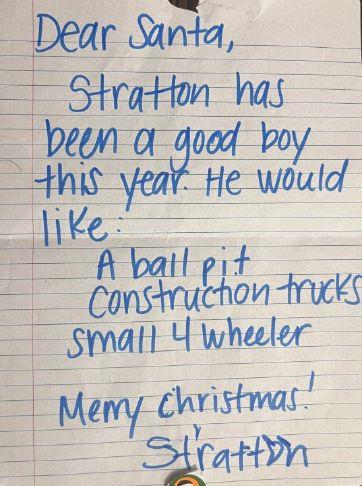 Dear Santa,
Stratton has
been a good boy
this year. He would
like:
A ball pit
construction trucks
small 4 wheeler
Merry Christmas!
Stratton